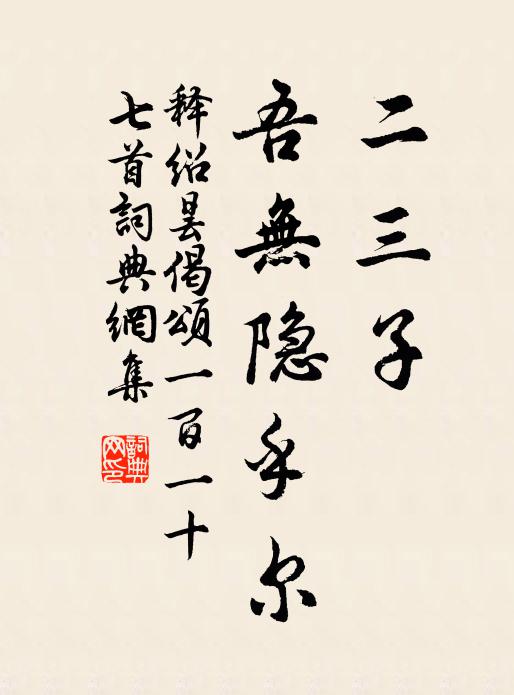 二三子
吾無隐乎尔
释绍昙偈頌一百一十
七首詞典網集
詞典网印